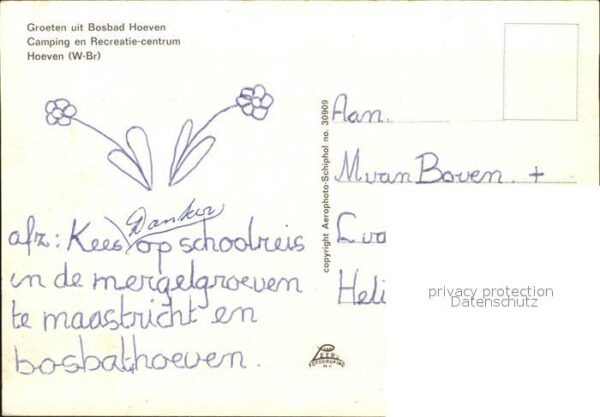 Groeten uit Bosbad Hoeven
Camping en Recreatie-centrum
Hoeven (W-Br)
afz: Kees Danker op schoolreis
in de mergelgroeven
te maastricht en
bosbathoeven.
copyright Aerophoto-Schiphol no. 30909
Aan.
M van Boven. +
L va
Heli
privacy protection
Datenschutz
FOTODRUKIND
N.V.